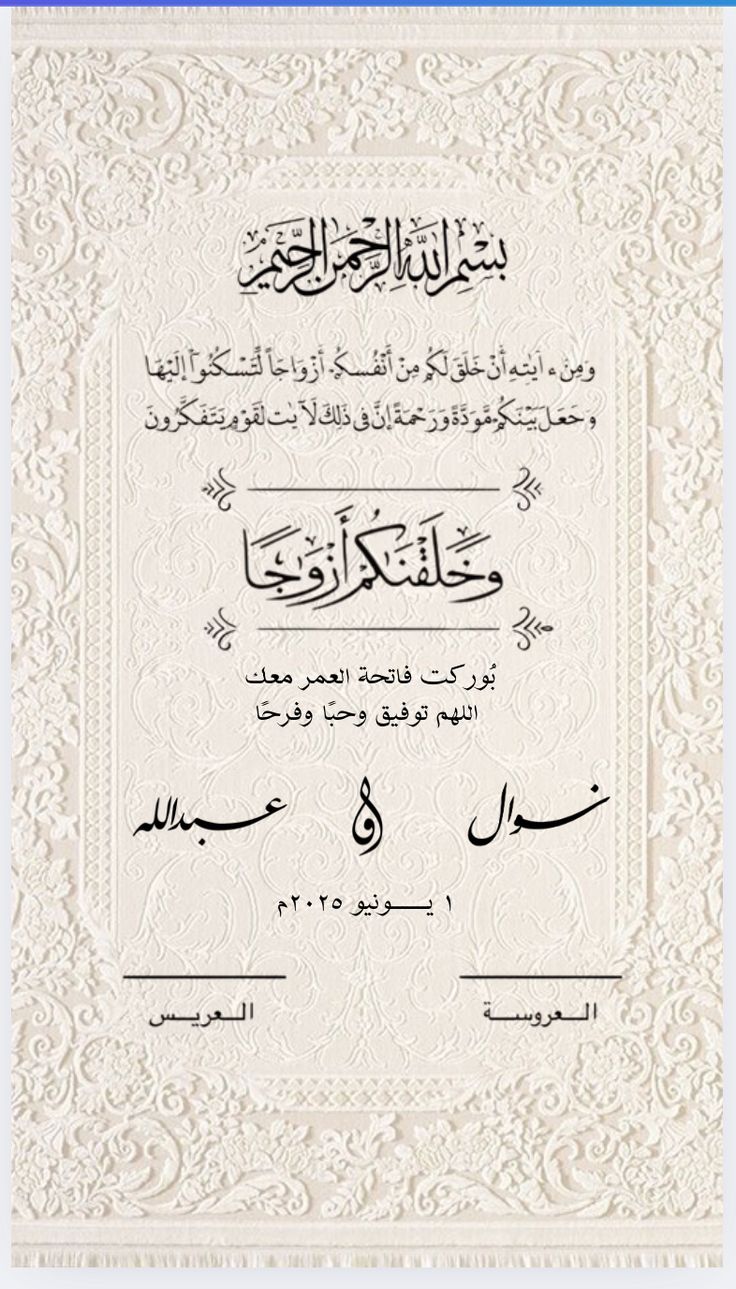 بِسْمِ اللَّهِ الرَّحْمَنِ الرَّحِيمِ
وَمِنْ ءَايَٰتِهِ أَنْ خَلَقَ لَكُم مِنْ أَنْفُسِكُمْ أَزْوَاجَاً لِّتَسْكُنُوٓاْ إِلَيْهَا
وَجَعَلَ بَيْنَكُم مَّوَدَّةً وَرَحْمَةً إِنَّ فِى ذَٰلِكَ لَآيَٰت لِقَوْمٍ يَتَفَكَّرُونَ
وَخَلَقْنَٰكُمْ أَزْوَٰجًا
بُوركت فاتحة العمر معك
اللهم توفيق وحبًا وفرحًا
نوال و عبدالله
١ يـــونيو ٢٠٢٥م
الـعروسـة الـعريـس